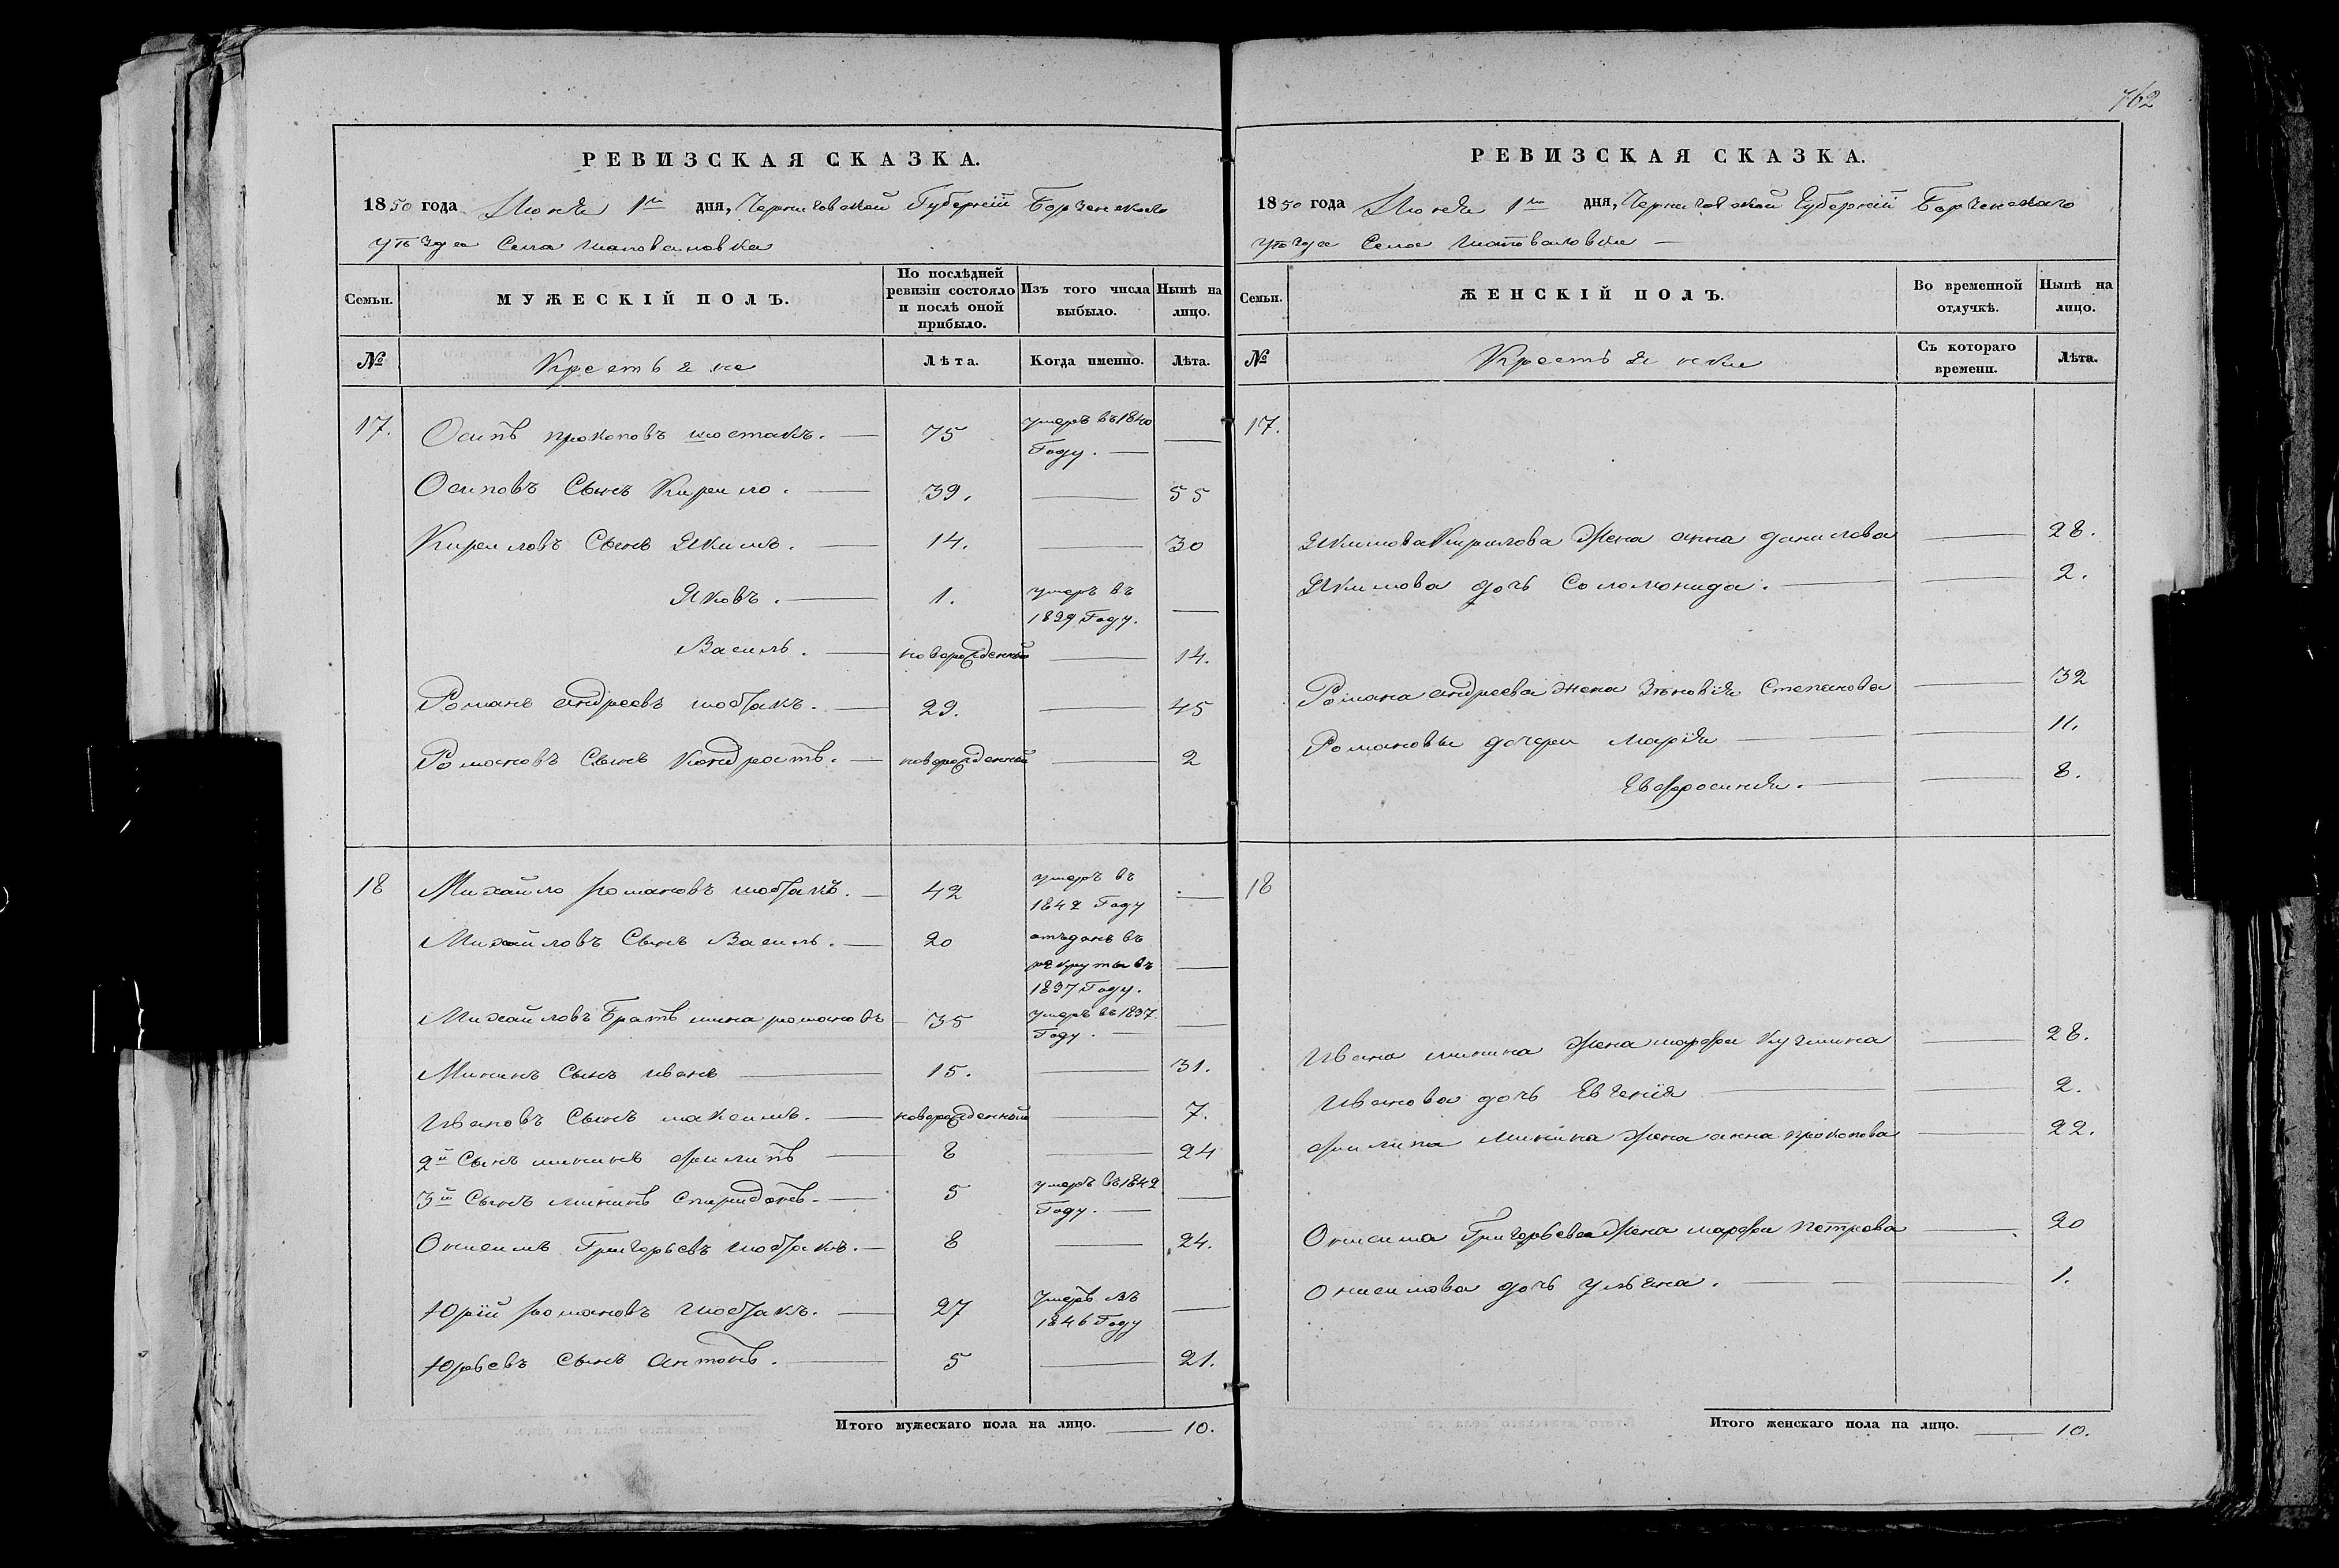 762
РЕВИЗСКАЯ СКАЗКА.
1850 года Июня 1го дня, Черниговской Губерній Борзенскаго
уѣзда Села Шаповаловка
Семьи.
МУЖЕСКІЙ ПОЛЪ.
По послѣдней ревизіи состояло и послѣ оной прибыло.
Изъ того числа выбыло.
Нынѣ на лицо.
№
Крестьяне
Лѣта.
Когда именно.
Лѣта.
17. Осипъ прокоповъ шостакъ. — 75 умеръ въ 1840 —
Году. —
Осиповъ Сынъ Кирило. — 39. — 55
Кириловъ Сынъ Якимъ. — 14. — 30
Яковъ. — 1. умеръ въ —
1839 Году.
Василь. — новорожденный — 14.
Романъ андреевъ шостакъ. — 29. — 45
Романовъ Сынъ Кондратъ. — новорожденный — 2
18 Михайло романовъ шостакъ. — 42 умеръ въ —
1842 Году
Михайловъ Сынъ Василь. — 20 отъданъ въ
рекруты въ —
1837 Году.
Михайловъ Братъ мина романовъ — 35 умеръ въ 1837 —
Году. —
Мининъ Сынъ иванъ — 15. — 31.
Ивановъ Сынъ максимъ. — новорожденный — 7.
2й Сынъ мининъ филипъ — 8 — 24
3й Сынъ мининъ Спиридонъ. — 5 умеръ въ 1842 —
Году. —
Онисимъ Григорьевъ шостакъ. — 8 — 24.
Юрій романовъ шостакъ. — 27 Умеръ въ —
1846 Году
Юрьевъ Сынъ Антонъ. — 5 — 21.
Итого мужескаго пола на лицо. — 10.
РЕВИЗСКАЯ СКАЗКА.
1850 года Июня 1го дня, Черниговской Губерній Борзенскаго
уѣзда Села Шаповаловки —
Семьи.
ЖЕНСКІЙ ПОЛЪ.
Во временной отлучкѣ.
Нынѣ на лицо.
№
Крестьянки
Съ котораго времени.
Лѣта.
17.
Якимова Кирилова Жена анна данилова — 28.
Якимова дочь Соломонида. — — 2.
Романа андреева жена Зѣновія Степанова — 32
Романовы дочери марія — — 11.
Евфросинія. — — 8.
18
Ивана минина Жена марфа Кузмина — 28.
Иванова дочь Евгенія — — 2.
филипа минина Жена анна прокопова — 22.
Онисима Григорьева Жена марфа петрова — 20
Онисимова дочь ульяна. — — 1.
Итого женскаго пола на лицо. — 10.